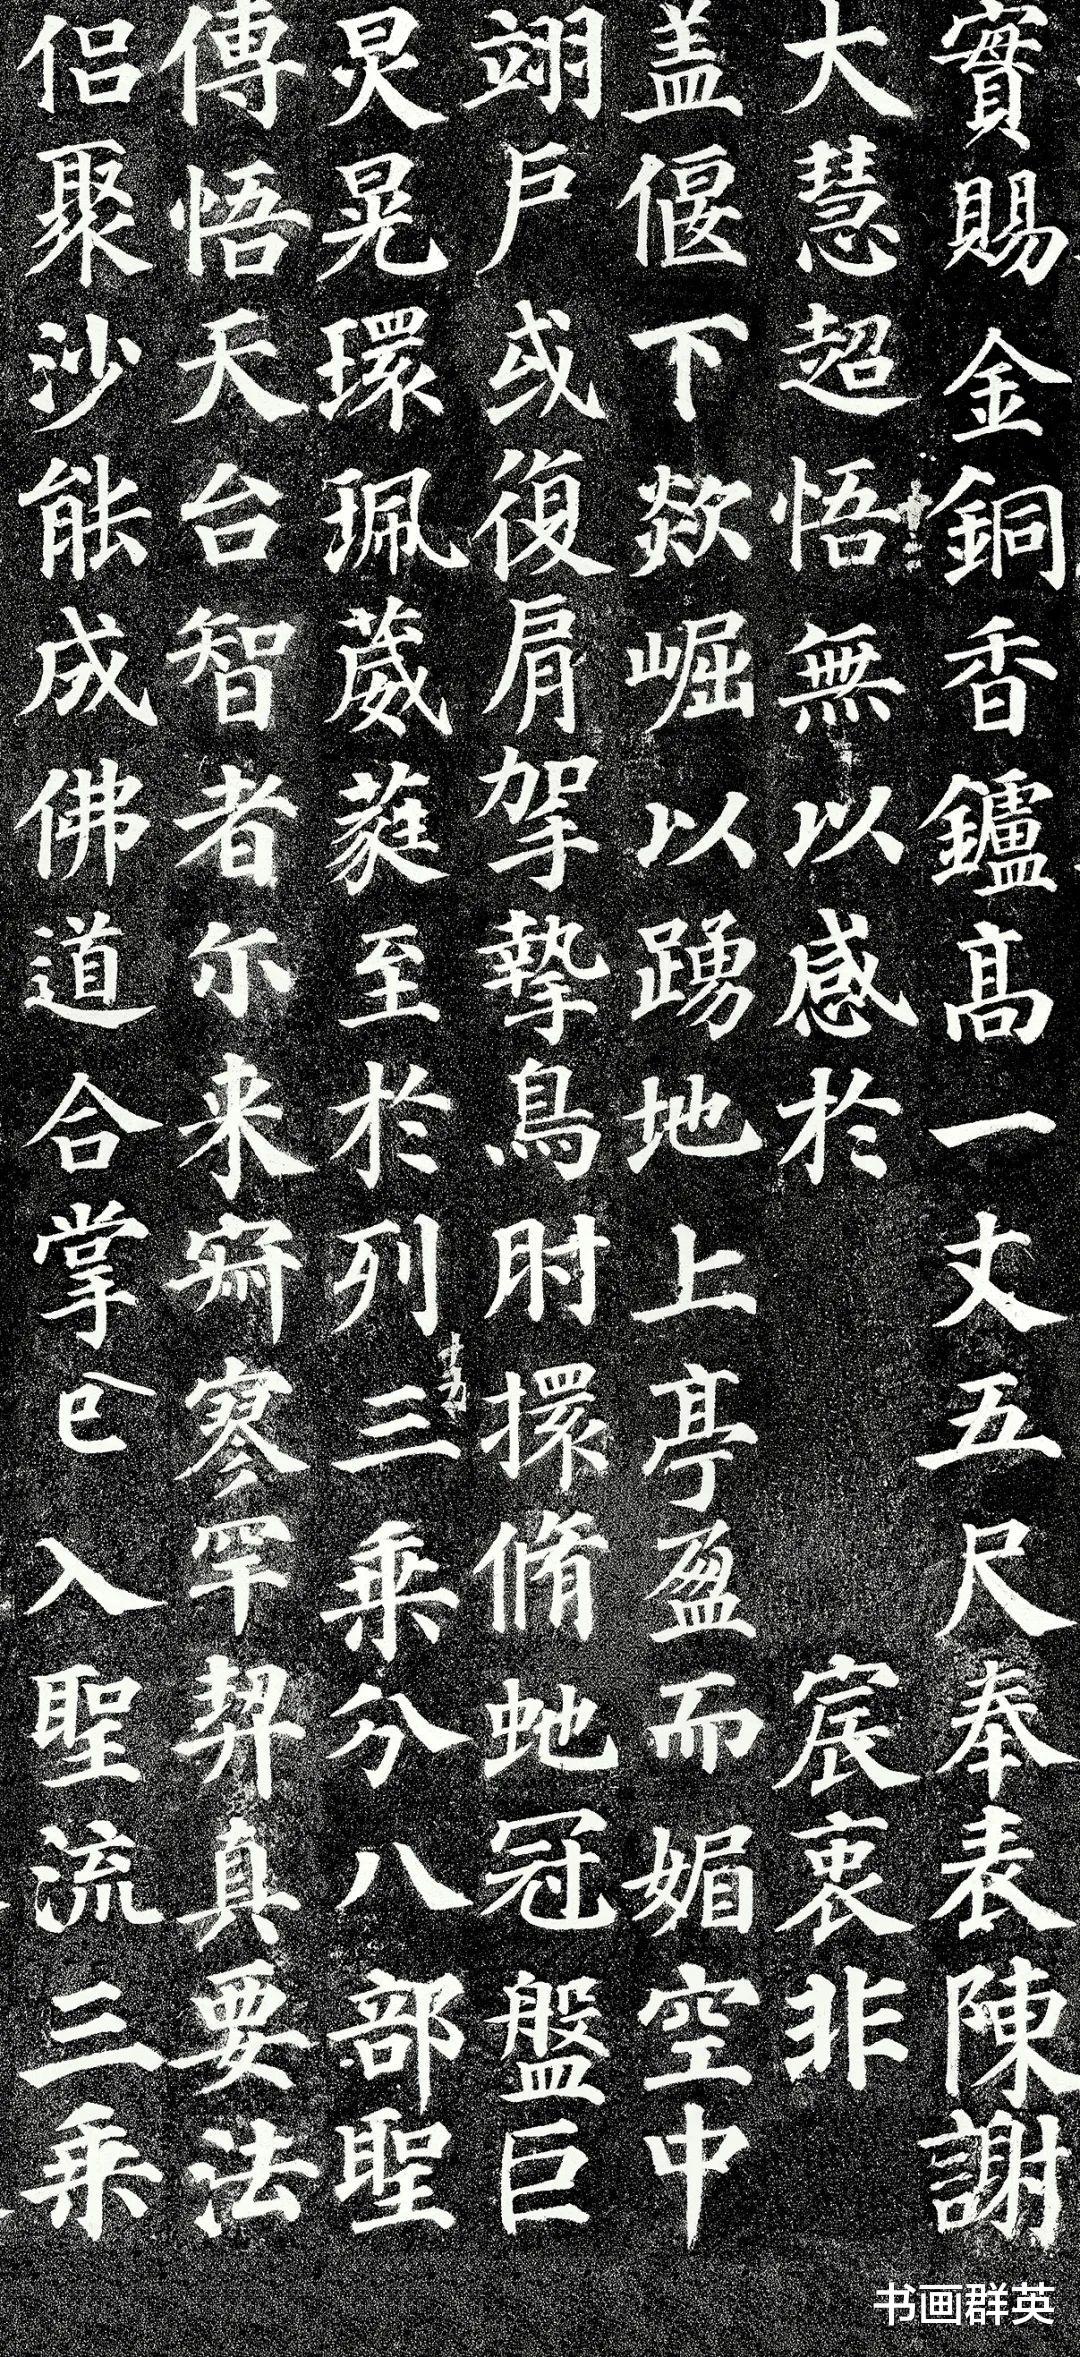 實賜金銅香鑪高一丈五尺奉表陳謝
大慧超悟無以感於宸衷非
盖偃下欻崛以踴地上亭盈而媚空中
翊户或復肩挐摯鳥肘擐脩虵冠盤巨
炅晃環珮葳蕤至於列三乘分八部聖
傳悟天台智者尓来寂寥罕契真要法
侣聚沙能成佛道合掌已入聖流三乘
书画群英